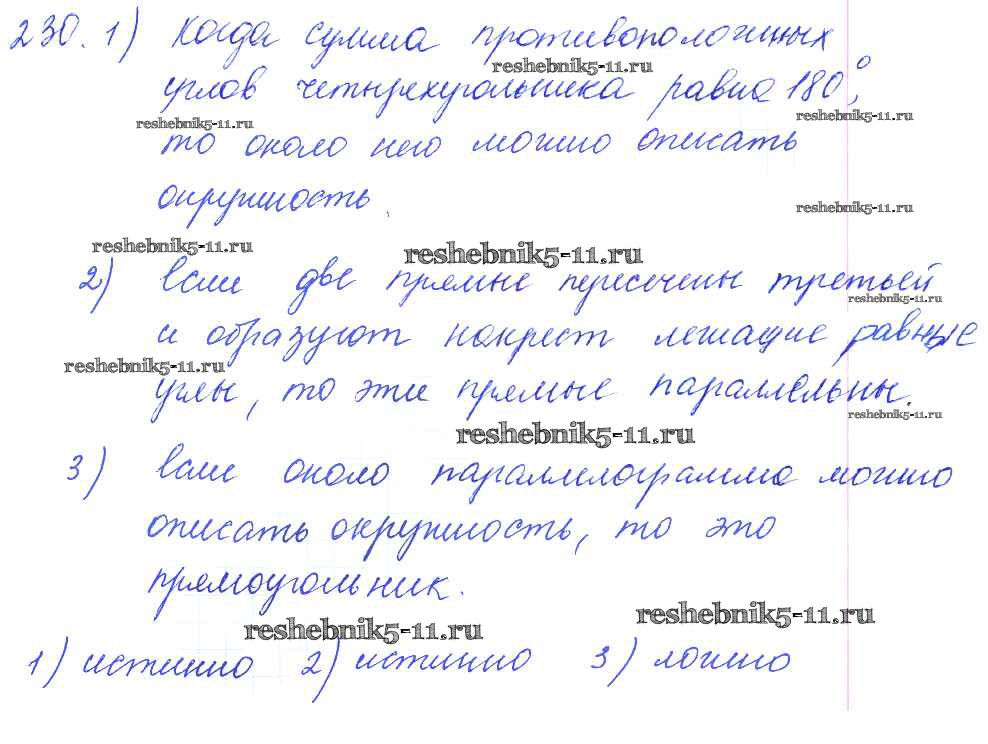 230. 1) Когда сумма противоположных
reshebnik5-11.ru
углов четырехугольника равна 180°,
reshebnik5-11.ru
reshebnik5-11.ru
то около него можно описать
окружность.
reshebnik5-11.ru
reshebnik5-11.ru
reshebnik5-11.ru
2) Если две прямые пересечены третьей
reshebnik5-11.ru
и образуют накрест лежащие равные
reshebnik5-11.ru
углы, то эти прямые параллельны.
reshebnik5-11.ru
reshebnik5-11.ru
3) Если около параллелограмма можно
описать окружность, то это
прямоугольник.
reshebnik5-11.ru
reshebnik5-11.ru
1) истинно 2) истинно 3) ложно